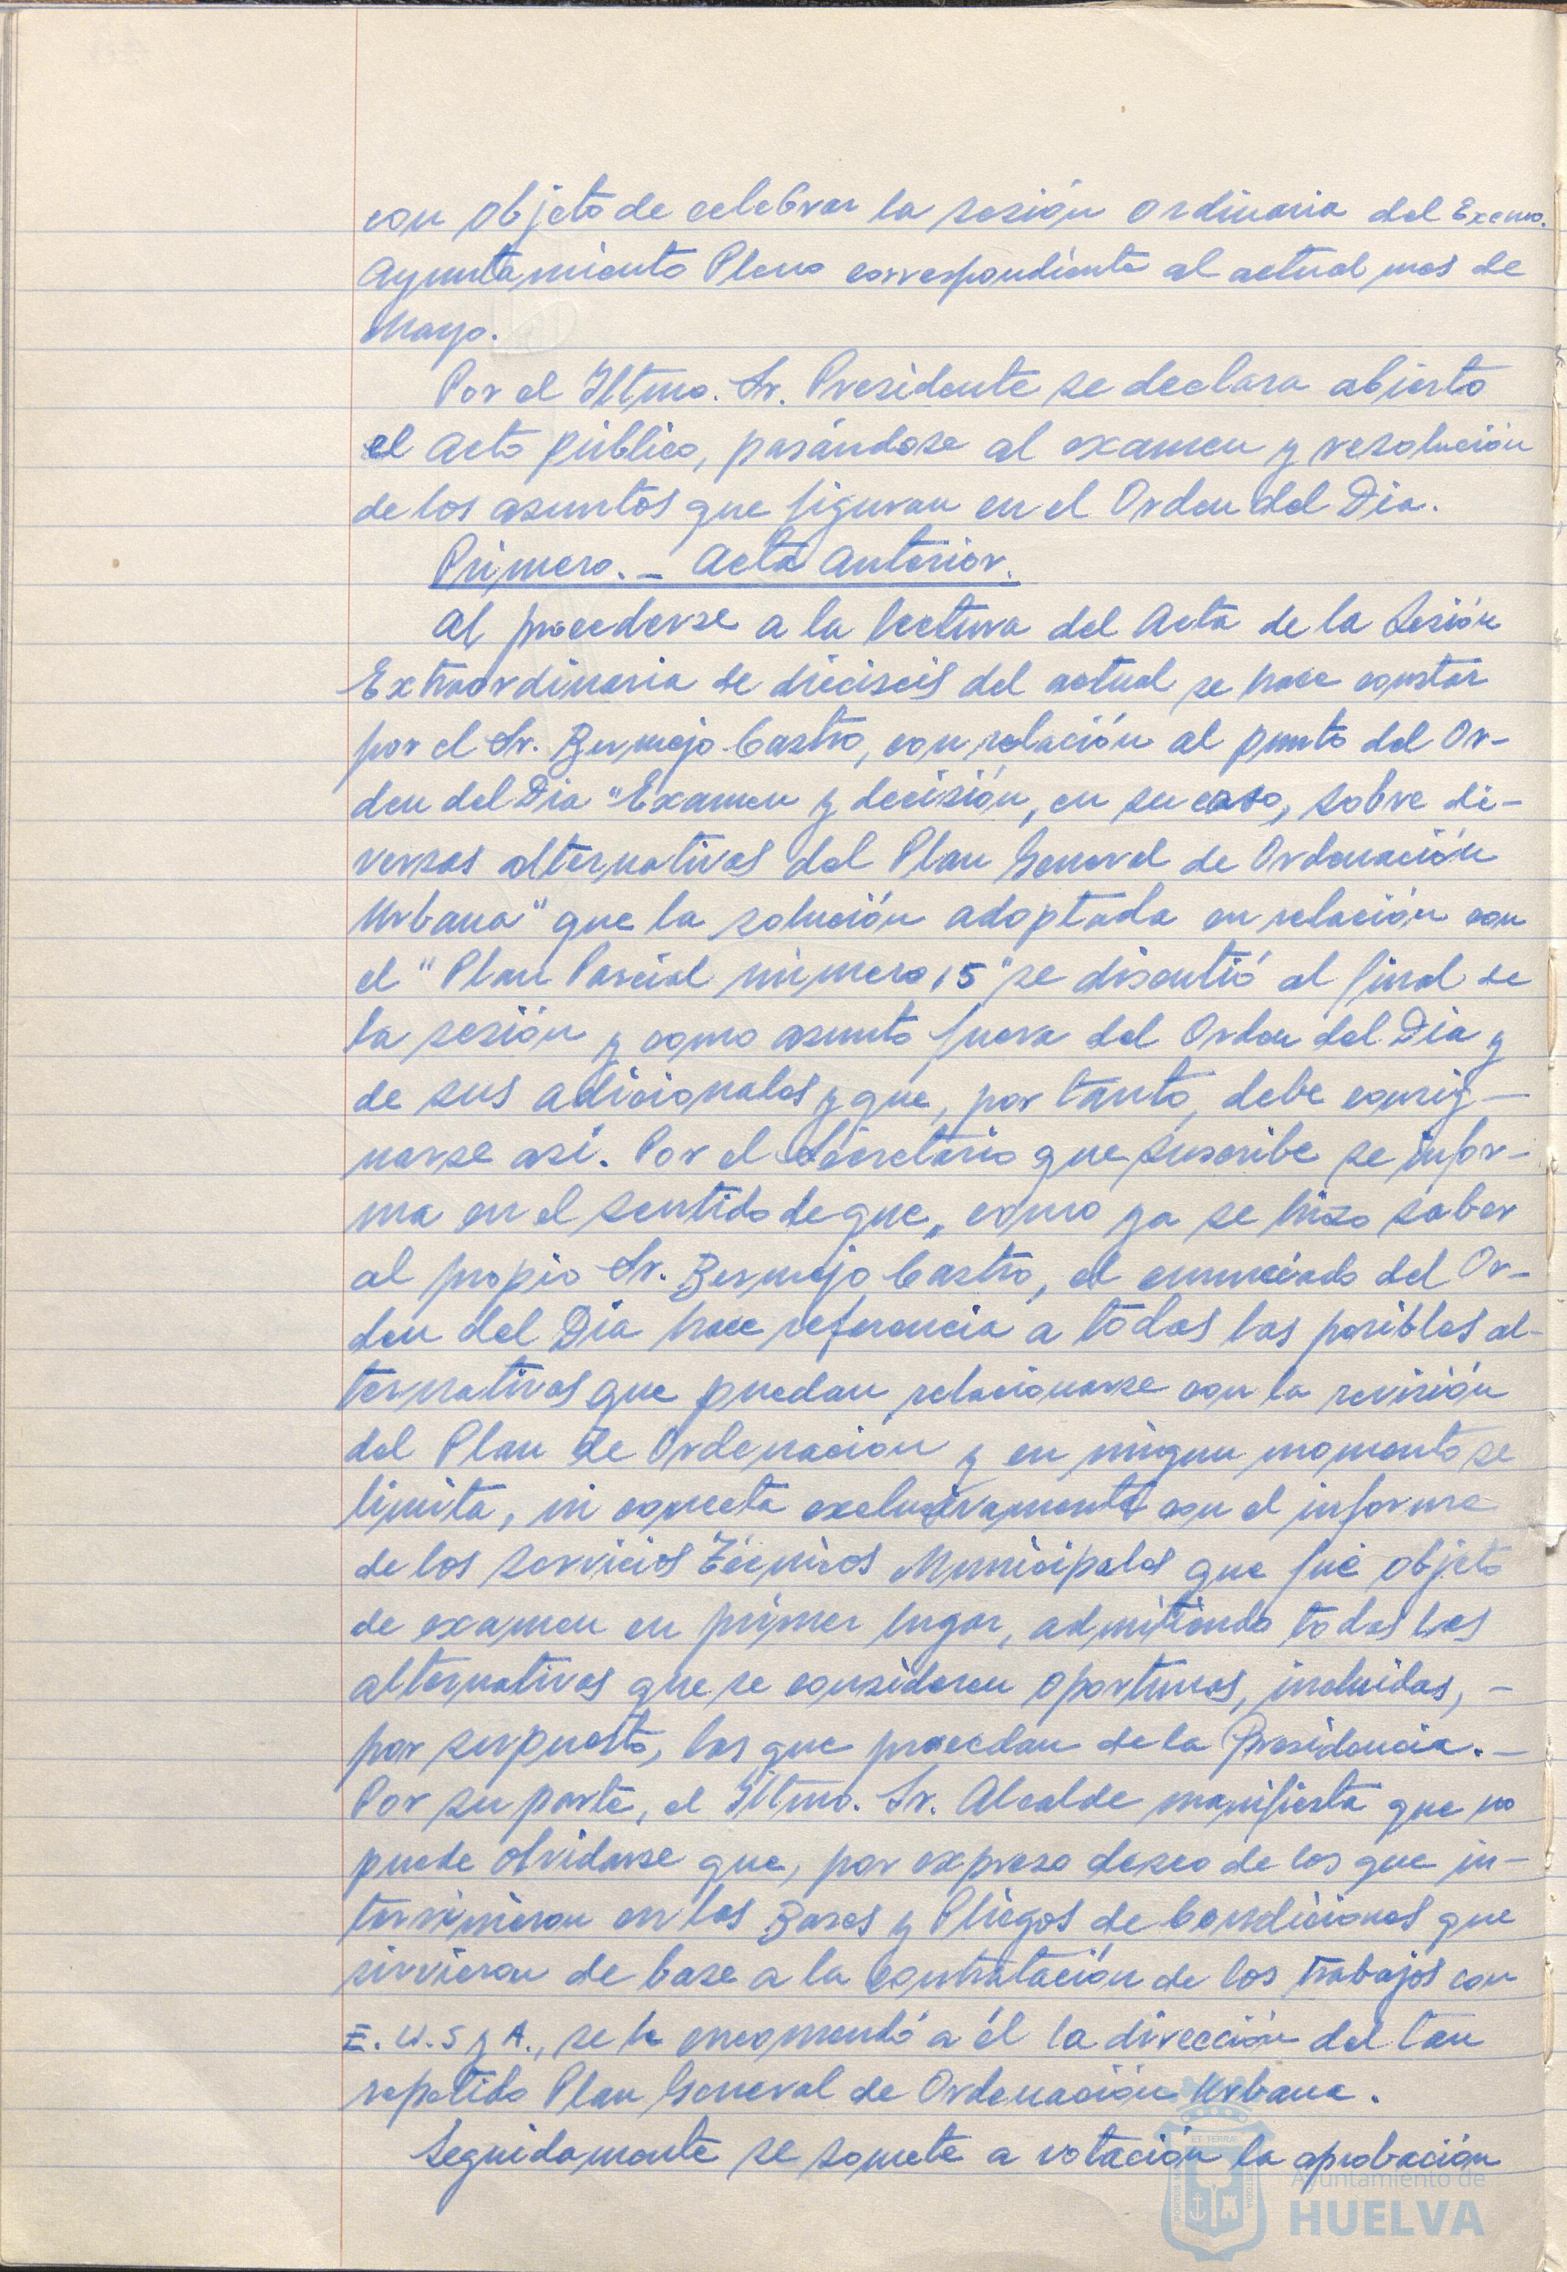 con objeto de celebrar la sesión ordinaria del Excmo.
Ayuntamiento Pleno correspondiente al actual mes de
Mayo.
Por el Iltmo. Sr. Presidente se declara abierto
el acto público, pasándose al examen y resolución
de los asuntos que figuran en el Orden del Dia.
Primero.- Acta anterior.
Al procederse a la lectura del Acta de la Sesión
Extraordinaria de dieciseis del actual se hace constar
por el Sr. Bermejo Castro, con relación al punto del Or-
den del Dia "Examen y decisión, en su caso, sobre di-
versas alternativas del Plan General de Ordenación
Urbana" que la solución adoptada en relación con
el "Plan Parcial número, 5" se discutió al final de
la sesión y como asunto fuera del Orden del Dia y
de sus adicionales y que, por tanto, debe consig-
narse asi. Por el Secretario que suscribe se infor-
ma en el sentido de que, como ya se hizo saber
al propio Sr. Bermejo Castro, el enunciado del Or-
den del Dia hace referencia a todas las posibles al-
ternativas que puedan relacionarse con la revisión
del Plan de Ordenación y en ningun momento se
limita, ni conecta exclusivamente con el informe
de los Servicios Técnicos Municipales que fué objeto
de examen en primer lugar, admitiendo todas las
alternativas que se consideren oportunas, incluidas, -
por supuesto, las que procedan de la Presidencia. -
Por su parte, el Iltmo. Sr. Alcalde manifiesta que no
puede olvidarse que, por expreso deseo de los que in-
tervinieron en las Bases y Pliegos de Condiciones que
sirvieron de base a la contratación de los trabajos con
E.U.S y A., se le encomendó a él la dirección del tan
repetido Plan General de Ordenación Urbana.
Seguidamente se somete a votación la aprobación
Ayuntamiento de
HUELVA